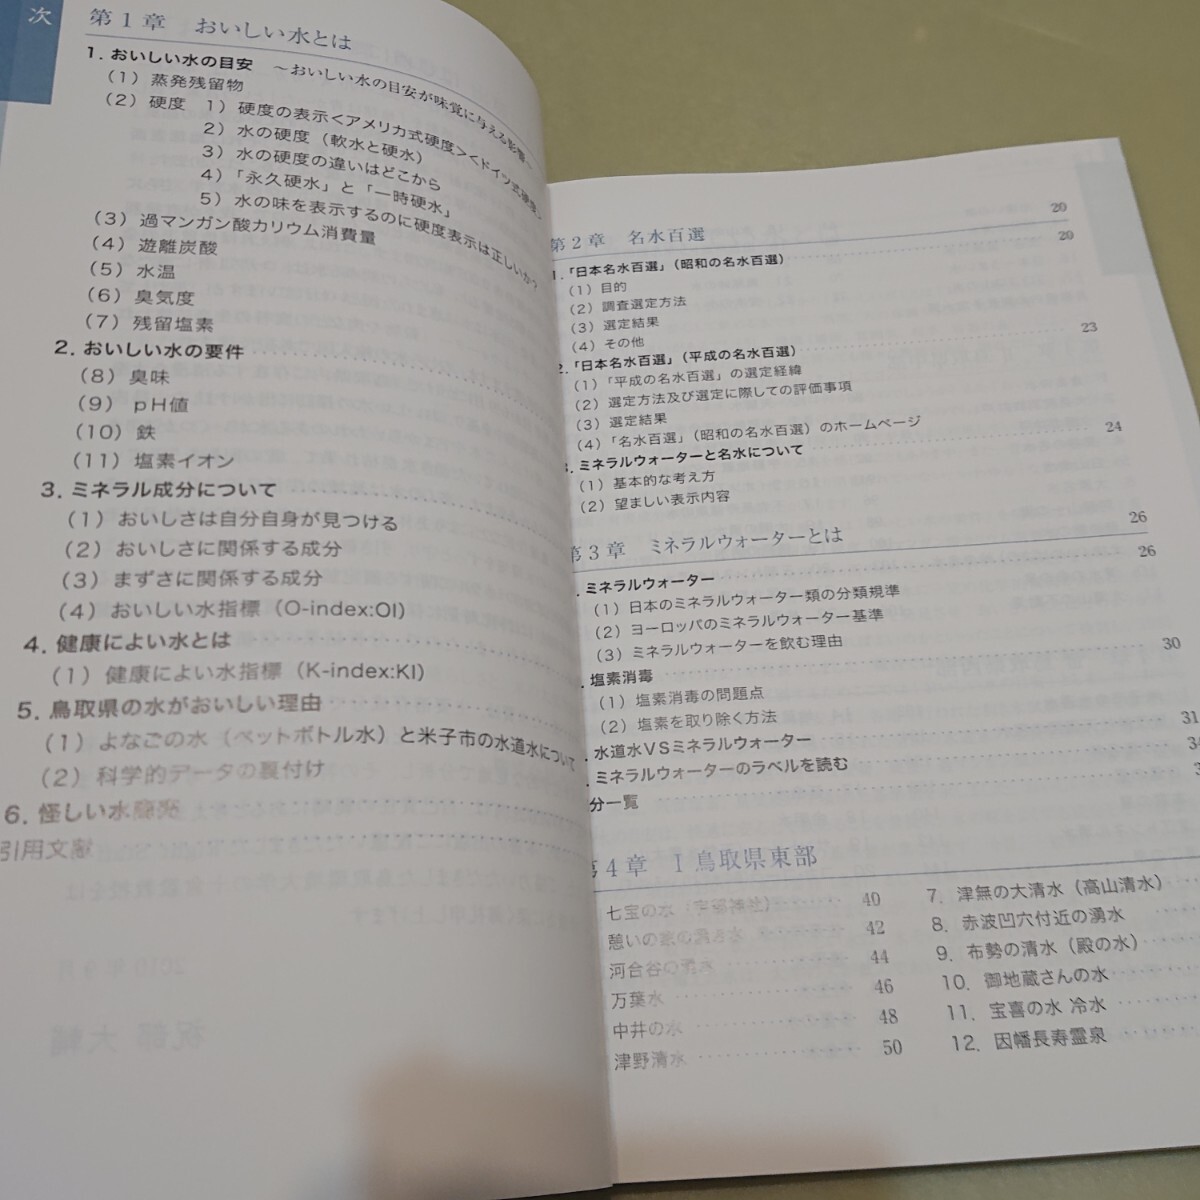 次
第1章 おいしい水とは
1. おいしい水の目安 ～おいしい水の目安が味覚に与える影響～
(1) 蒸発残留物
(2) 硬度 1) 硬度の表示<アメリカ式硬度><ドイツ式硬度>
2) 水の硬度(軟水と硬水)
3) 水の硬度の違いはどこから
4)「永久硬水」と「一時硬水」
5) 水の味を表示するのに硬度表示は正しいか?
(3) 過マンガン酸カリウム消費量
(4) 遊離炭酸
(5) 水温
(6) 臭気度
(7) 残留塩素
2. おいしい水の要件
(8) 臭味
(9) pH値
(10) 鉄
(11) 塩素イオン
3. ミネラル成分について
(1) おいしさは自分自身が見つける
(2) おいしさに関係する成分
(3) まずさに関係する成分
(4) おいしい水指標(O-index:OI)
4. 健康によい水とは
(1) 健康によい水指標(K-index:KI)
5. 鳥取県の水がおいしい理由
(1) よなごの水(ペットボトル水)と米子市の水道水について
(2) 科学的データの裏付け
6. 怪しい水商売
引用文献
第2章 名水百選 20
1.「日本名水百選」(昭和の名水百選) 20
(1) 目的
(2) 調査選定方法
(3) 選定結果
(4) その他
2.「日本名水百選」(平成の名水百選) 23
(1)「平成の名水百選」の選定経緯
(2) 選定方法及び選定に際しての評価事項
(3) 選定結果
(4)「名水百選」(昭和の名水百選)のホームページ
3. ミネラルウォーターと名水について 24
(1) 基本的な考え方
(2) 望ましい表示内容
第3章 ミネラルウォーターとは 26
ミネラルウォーター 26
(1) 日本のミネラルウォーター類の分類規準
(2) ヨーロッパのミネラルウォーター基準
(3) ミネラルウォーターを飲む理由
塩素消毒 30
(1) 塩素消毒の問題点
(2) 塩素を取り除く方法
水道水VSミネラルウォーター 31
ミネラルウォーターのラベルを読む
分一覧
第4章 I 鳥取県東部
七宝の水(宇部神社) 40
憩いの旅の湧き水 42
河合谷の清水 44
万葉水 46
中井の水 48
津野清水 50
7. 津無の大清水(高山清水)
8. 赤波凹穴付近の湧水
9. 布勢の清水(殿の水)
10. 御地蔵さんの水
11. 宝喜の水 冷水
12. 因幡長寿霊泉